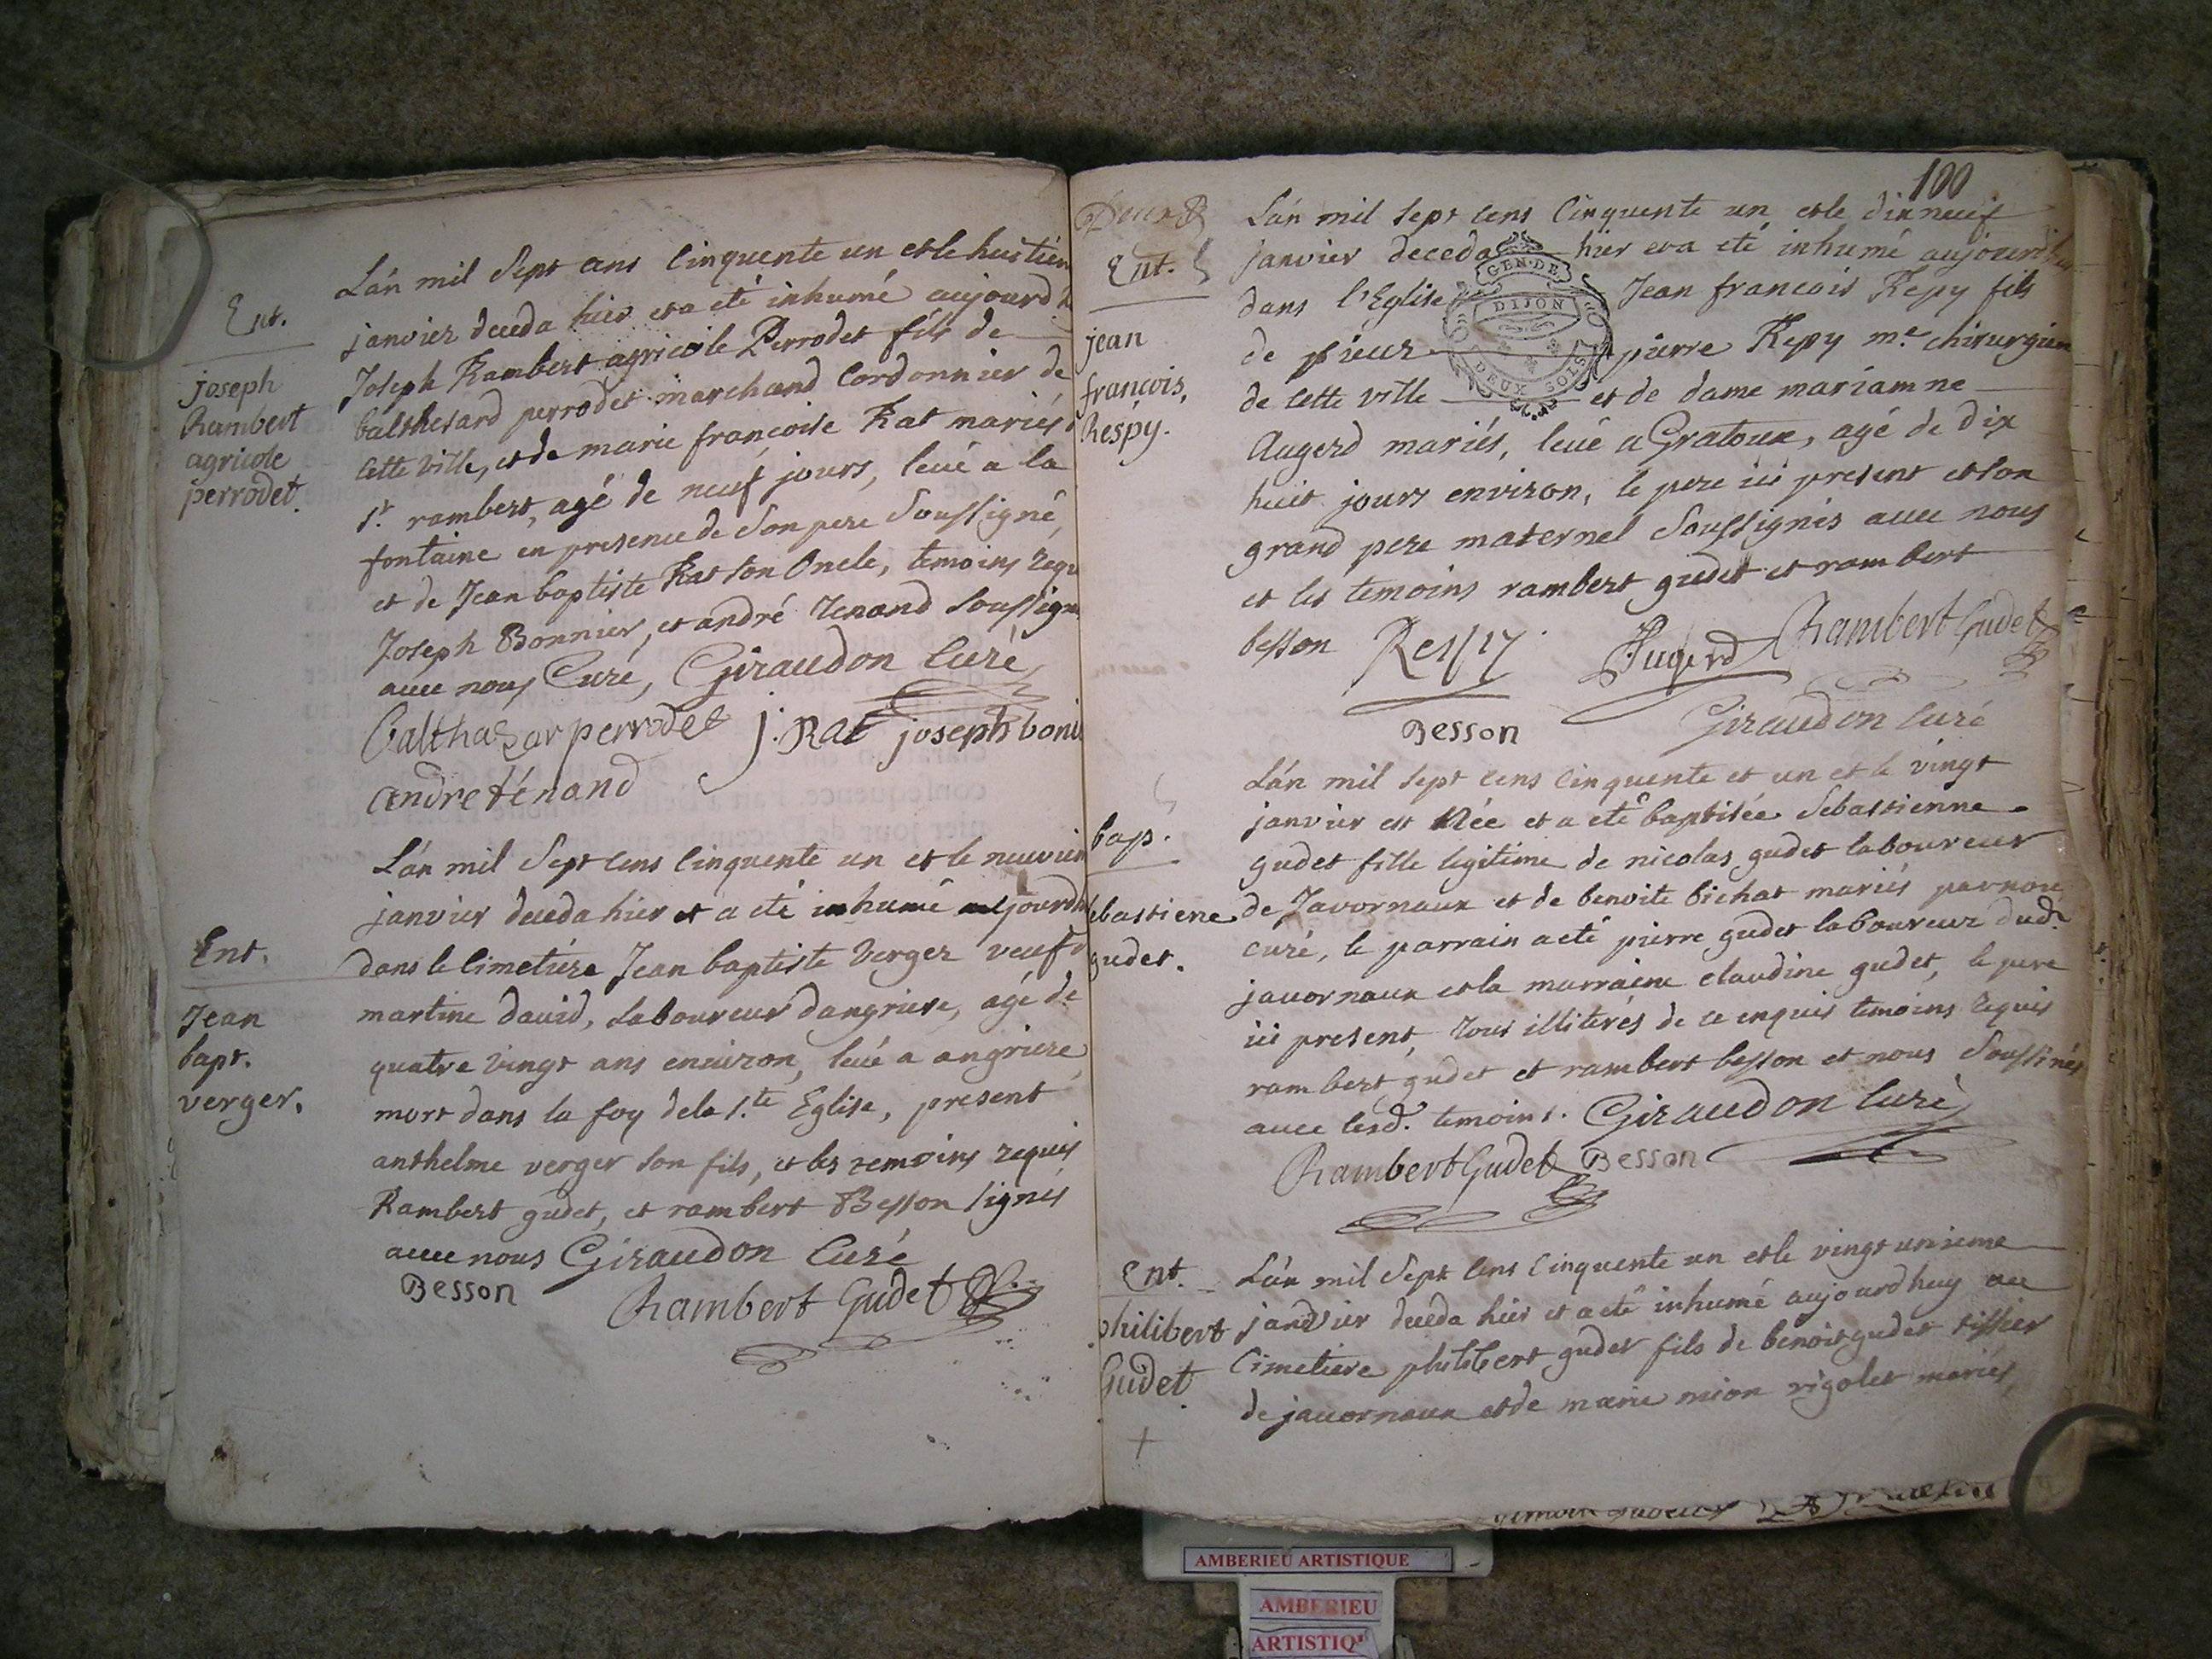 Ent.
joseph
Rambert
agricole
perrodet.
L'an mil Sept cens Cinquente un et le huitiem
janvier deceda hier et a eté inhumé aujourd'h
Joseph Rambert agricole Perrodet fils de
balthesard perrodet marchand Cordonnier de
cette ville, et de marie francoise Rat mariés
St. rambert, agé de neuf jours, levé a la
fontaine en presence de Son pere Soussigné
et de Jean baptiste Rat son Oncle, temoins requ
Joseph Bonnier, et andré tenand soussign
avec nous Curé, Giraudon Curé
Balthasar perrodet j. Rat joseph boni
andre ténand
Ent.
Jean
bapt.
verger.
L'an mil Sept cens Cinquente un et le neuvien
janvier deceda hier et a eté inhumé aujourdh
dans le Cimetiére Jean baptiste Verger veuf d
martine david, Laboureur dangriere, agé de
quatre vingt ans environ, levé a angriere
mort dans la foy dela S.te Eglise, present
anthelme verger son fils, et les temoins requis
Rambert gudet, et rambert Besson signés
avec nous Giraudon Curé
Besson Rambert Gudet
100
Deux
Ent.
jean
francois,
Respy.
L'an mil Sept cens Cinquente un et le dixneuf
janvier deceda hier et a eté inhumé aujourdhu
dans l'Eglise Jean francois Repy fils
de sieur pierre Repy me. chirurgien
de cette ville et de dame mariamne
Augerd mariés, levé a Gratoux, agé de dix
huit jours environ, le pere ici present et son
grand pere maternel Soussignés avec nous
et les temoins rambert gudet et rambert
besson Respy Augerd Rambert Gudet
Besson Giraudon Curé
GEN. DE.
DIJON
DEUX SOLS
bap.
ebastiene
gudet.
L'an mil sept cens Cinquente et un et le vingt
janvier est Née et a eté baptisée Sebastienne
gudet fille legitime de nicolas gudet laboureur
de Javornaux et de benoite bichat mariés par nou
curé, le parrain a eté pierre gudet laboureur dud.
javornaux et la marraine claudine gudet, le pere
ici present, tous illiterés de ce enquis temoins requis
rambert gudet et rambert besson et nous Soussinés
avec lesd. temoins. Giraudon Curé
Rambert Gudet Besson
Ent.
philibert
Gudet.
L'an mil Sept cens Cinquente un et le vingt unieme
janvier deceda hier et a eté inhumé aujourdhuy au
Cimetiere philibert gudet fils de benoit gudet tissier
de javornaux et de marie mion rigolet mariés
AMBERIEU ARTISTIQUE
AMBERIEU
ARTISTIQ